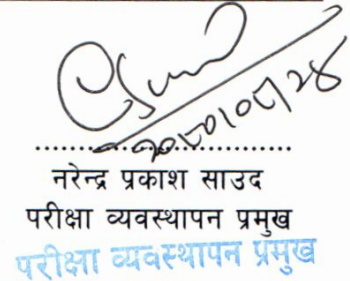 नरेन्द्र प्रकाश साउद
परीक्षा व्यवस्थापन प्रमुख
परीक्षा व्यवस्थापन प्रमुख